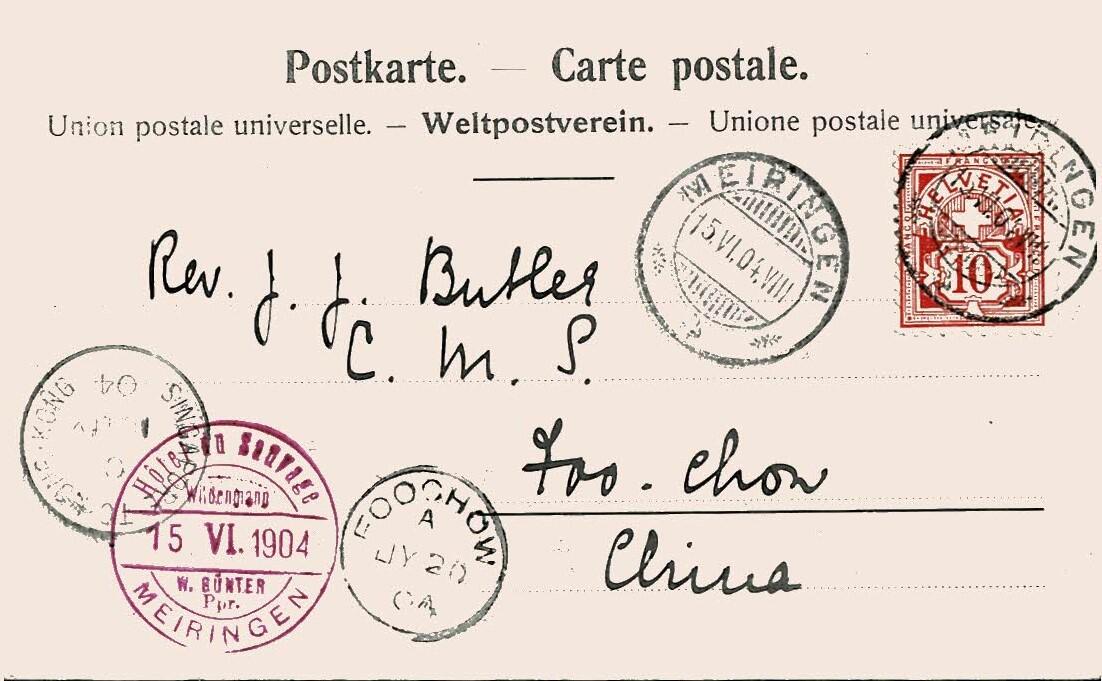 Postkarte. — Carte postale.
Union postale universelle. — Weltpostverein. — Unione postale universale.
MEIRINGEN
15.VI.04.VIII
MEIRINGEN
FRANCO
HELVETIA
10
Rev. J. J. Butler
C. M. S.
Foo-chow
China
KONG SINGAPO
04
Hôtel du Sauvage
Wildenmang
15 VI. 1904
W. BÜNTER
Ppr.
MEIRINGEN
FOOCHOW
A
JY 20
04